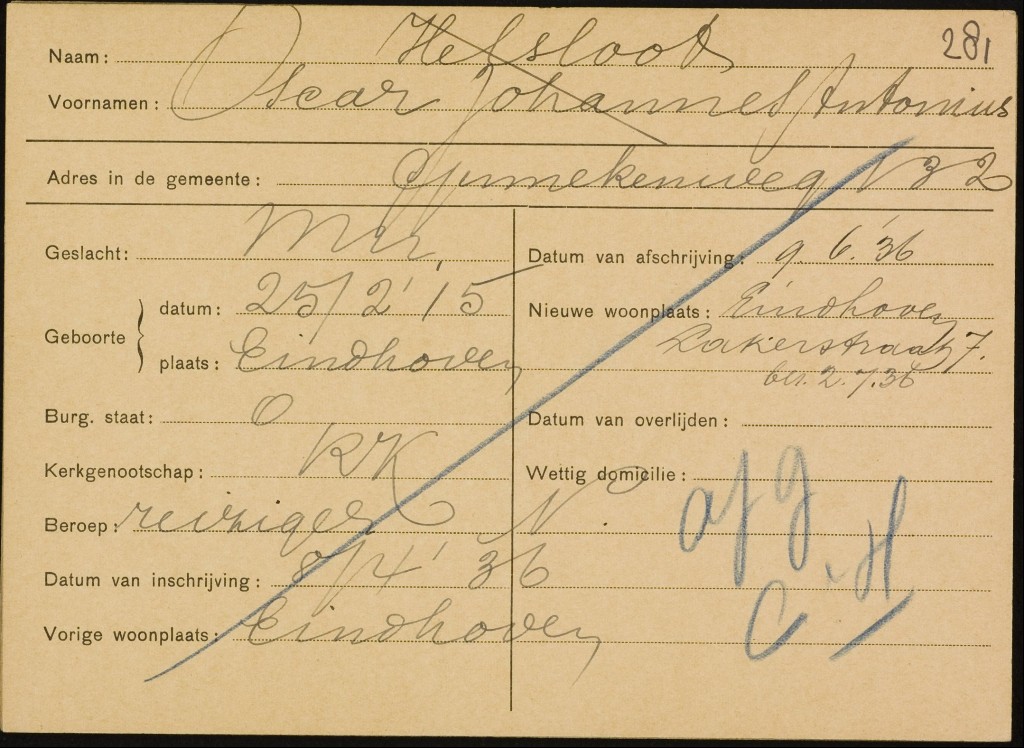 281
Naam: Hefsloot
Voornamen: Oscar Johannes Antonius
Adres in de gemeente: Ginnekenweg 132
Geslacht: Mn.
Geboorte
datum: 25/2 '15
plaats: Eindhoven
Burg. staat: O
Kerkgenootschap: RK
Beroep: reiziger
Datum van inschrijving: 8/4 '36
Vorige woonplaats: Eindhoven
Datum van afschrijving: 9. 6. '36
Nieuwe woonplaats: Eindhoven
Lakerstraat 7.
ber. 2.7.36
Datum van overlijden:
Wettig domicilie:
N.
afg
C.H